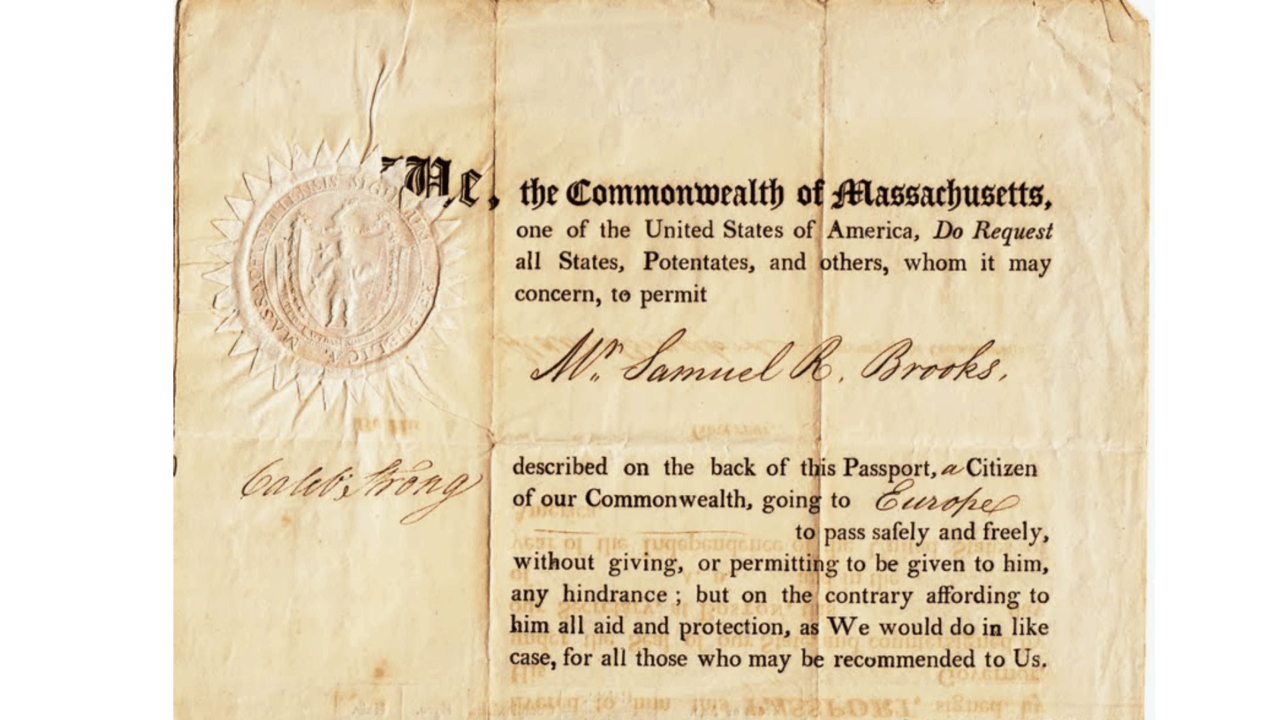 We, the Commonwealth of Massachusetts,
one of the United States of America, Do Request
all States, Potentates, and others, whom it may
concern, to permit
Mr. Samuel R. Brooks.
described on the back of this Passport, a Citizen
Caleb Strong
of our Commonwealth, going to Europe
to pass safely and freely,
without giving, or permitting to be given to him,
any hindrance ; but on the contrary affording to
him all aid and protection, as We would do in like
case, for all those who may be recommended to Us.